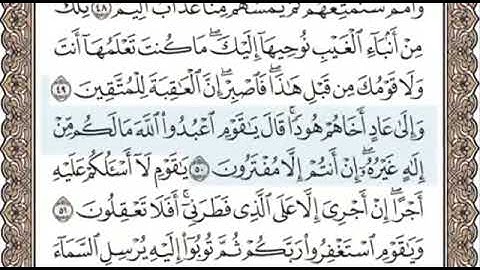 وَأُمَمٌ سَنُمَتِّعُهُمْ ثُمَّ يَمَسُّهُم مِّنَّا عَذَابٌ أَلِيمٌ ٤٨ تِلْكَ
مِنْ أَنۢبَآءِ ٱلْغَيْبِ نُوحِيهَآ إِلَيْكَۖ مَا كُنتَ تَعْلَمُهَآ أَنتَ
وَلَا قَوْمُكَ مِن قَبْلِ هَٰذَاۖ فَٱصْبِرْۖ إِنَّ ٱلْعَٰقِبَةَ لِلْمُتَّقِينَ ٤٩
وَإِلَىٰ عَادٍ أَخَاهُمْ هُودًاۚ قَالَ يَٰقَوْمِ ٱعْبُدُوا۟ ٱللَّهَ مَا لَكُم مِّنْ
إِلَٰهٍ غَيْرُهُۥٓۖ إِنْ أَنتُمْ إِلَّا مُفْتَرُونَ ٥٠ يَٰقَوْمِ لَآ أَسْـَٔلُكُمْ عَلَيْهِ
أَجْرًاۖ إِنْ أَجْرِىَ إِلَّا عَلَى ٱلَّذِى فَطَرَنِىٓۚ أَفَلَا تَعْقِلُونَ ٥١
وَيَٰقَوْمِ ٱسْتَغْفِرُوا۟ رَبَّكُمْ ثُمَّ تُوبُوٓا۟ إِلَيْهِ يُرْسِلِ ٱلسَّمَآءَ